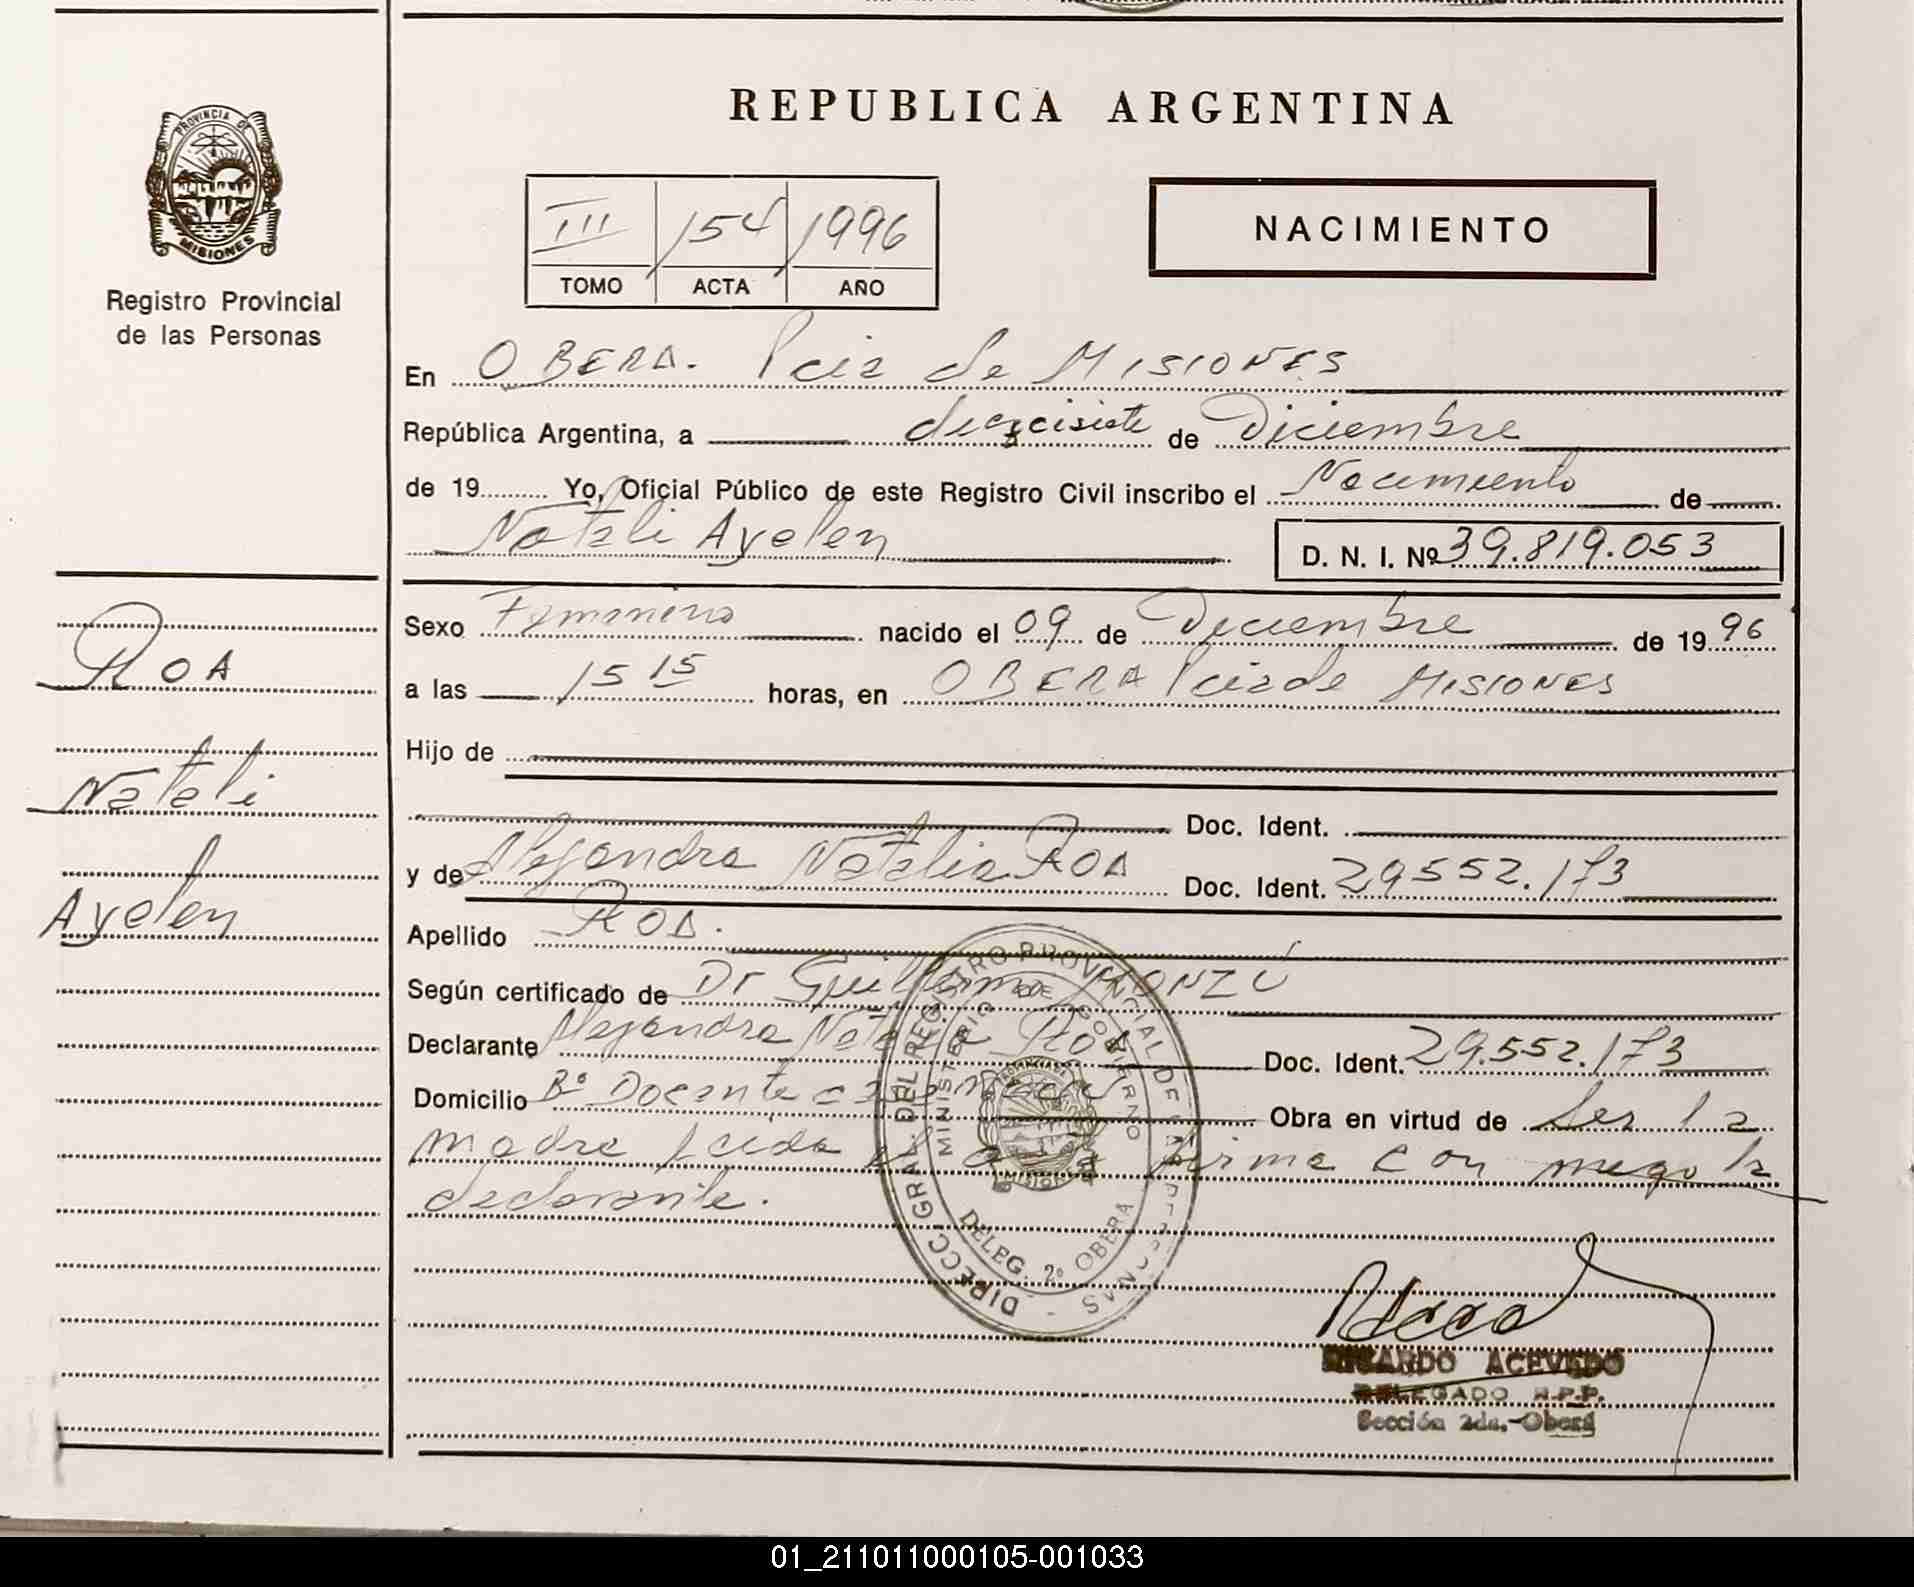 REPUBLICA ARGENTINA
PROVINCIA DE
MISIONES
Registro Provincial
de las Personas
III 154 1996
TOMO ACTA AÑO
NACIMIENTO
En OBERA. Pcia de MISIONES
República Argentina, a diecisiete de Diciembre
de 19 Yo, Oficial Público de este Registro Civil inscribo el Nacimiento de
Natali Ayelen D. N. I. Nº 39.819.053
Sexo Femenino nacido el 09 de Diciembre de 19 96
a las 15 15 horas, en OBERA Pcia de MISIONES
Hijo de
Doc. Ident.
y de Alejandra Natalia ROA Doc. Ident. 29552.173
Apellido ROA.
Según certificado de Dr Guillermo MONZÚ
Declarante Alejandra Natalia Roa Doc. Ident. 29.552.173
Domicilio Bº Docente Obra en virtud de Ser la
madre Leida el acta firma con migo la
declarante.
ROA
Natali
Ayelen
DIRECC. GRAL. DEL REGISTRO PROVINCIAL DE LAS PERSONAS
MINISTERIO DE GOBIERNO
DELEG. 2º OBERA
RICARDO ACEVEDO
DELEGADO R.P.P.
Sección 2da.-Oberá
01_211011000105-001033